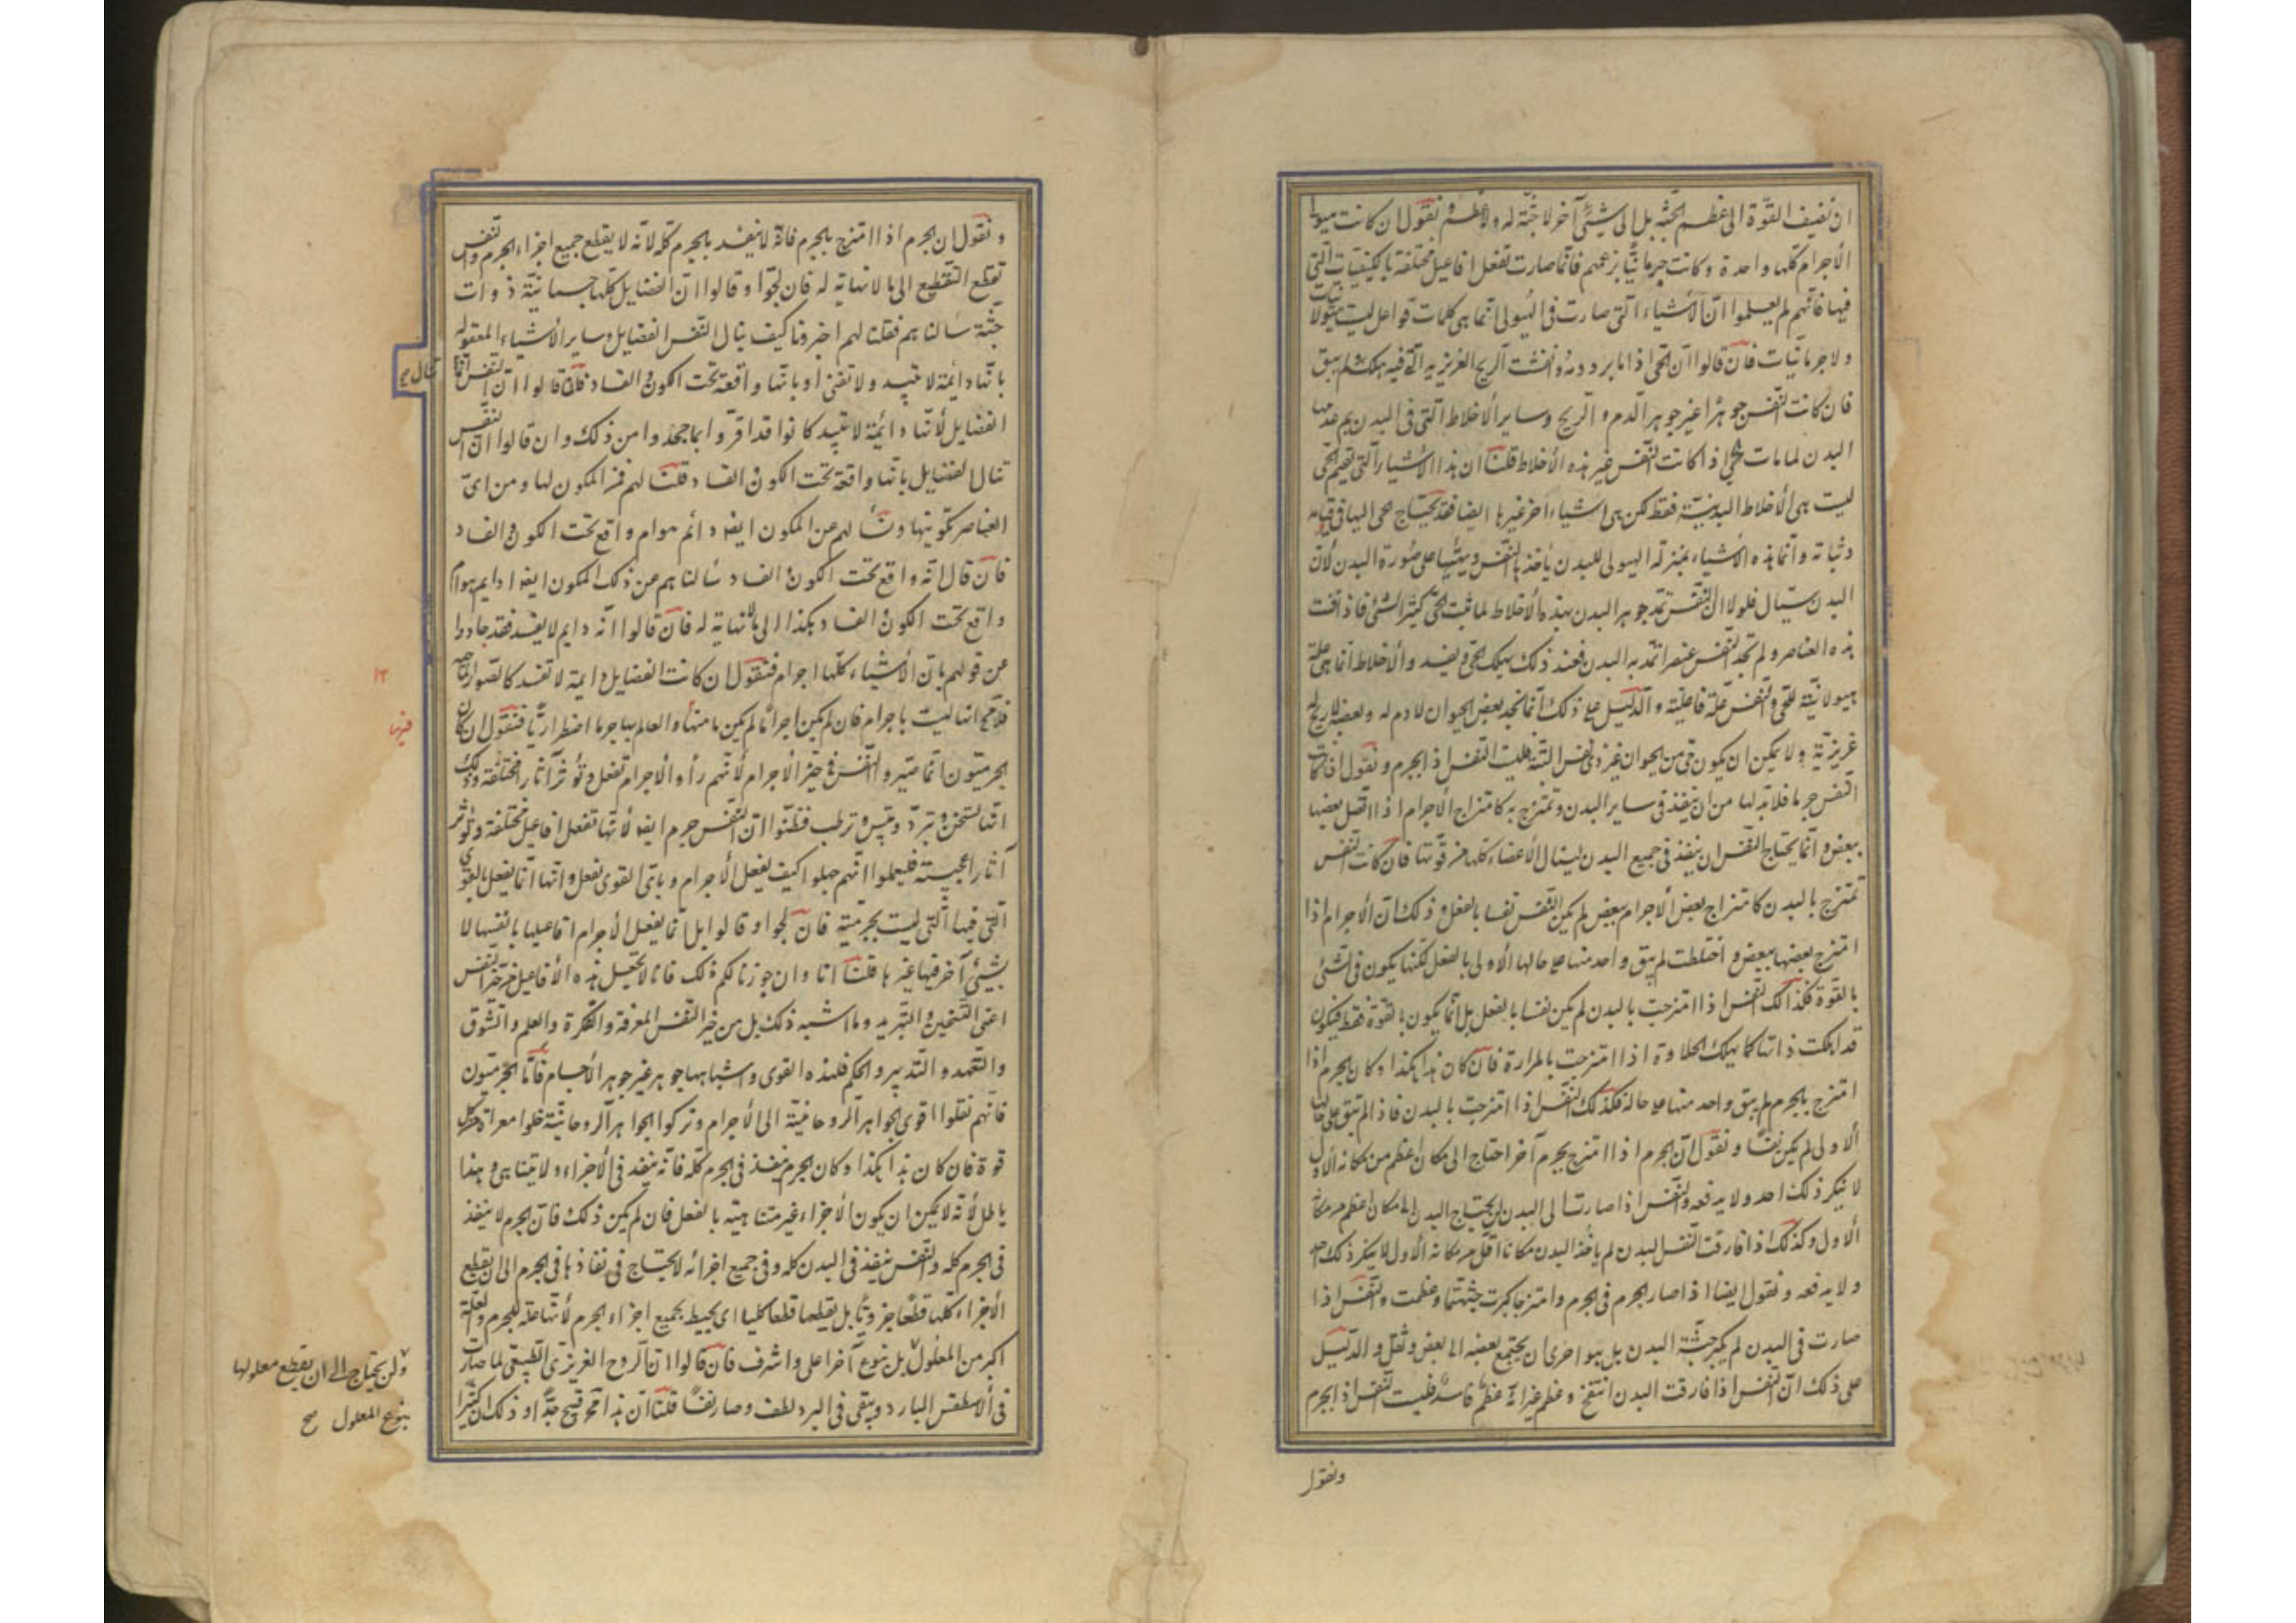 ان نضيف القوّة الى عظم الجثّة بل الى شيئ آخر لا جثّة له ولا عظم و نقول ان كانت هيولى
الأجرام كلها واحدة وكانت جرمانيّا بزعمهم فانما صارت تفعل افاعيل مختلفة بالكيفيات التي
فيها فانهم لم يعلموا انّ الأشياء التي صارت في الهيولى انما هي كلمات فواعل ليست هيولانيات
ولا جرمانيّات فان قالوا ان الحى اذا ما برد دمه وانفشت الريح الغريزيه التي فيه هلك ولم يبق
فان كانت النفس جوهرا غير جوهر الدم و الريح وساير الأخلاط التي في البدن ثم عدمها
البدن لما مات الحى اذا كانت النفس غير هذه الأخلاط قلنا ان هذا الاشياء التي تقيم الحى
ليست هى الأخلاط البدنيّة فقط لكن هى اشياء اخر غيرها ايضا فقد يحتاج الحى اليها في قيامه
وثباته وانما هذه الأشياء بمنزلة الهيولى للبدن يأخذها النفس ويهيّئها على صورة البدن لأنّ
البدن سيّال فلولا ان النفس تمد جوهر البدن بهذه الأخلاط لما ثبت الحى كثير الشئ فاذا فنت
هذه العناصر ولم تجد النفس عنصرا تمد به البدن فعند ذلك يهلك الحى ويفسد والأخلاط انما هى علة
هيولانيّة للحى والنفس علة فاعليّة والدليل على ذلك انا نجد بعض الحيوان لا دم له وبعضه لا ريح له
غريزيّة ولا يمكن ان يكون حى من الحيوان غير ذى نفس البتة فليست النفس اذ الجرم و نقول ان كانت
النفس جرما فلا بد لها من ان تنفذ في ساير البدن و تمتزج به كامتزاج الأجرام اذا اتصل بعضها
ببعض و انما يحتاج النفس ان ينفذ في جميع البدن لينال الأعضاء كلها من قوتها فان كانت النفس
تمتزج بالبدن كامتزاج بعض الأجرام ببعض لم يكن النفس نفسا بالفعل و ذلك ان الأجرام اذا
امتزج بعضها ببعض و اختلطت لم يبق واحد منها على حالها الأولى بالفعل لكنها يكون في الشئ
بالقوة فكذالك النفس اذا امتزجت بالبدن لم يكن نفسا بالفعل بل انما يكون بالقوة فقط فيكون
قد اهلكت ذاتها كما يهلك الحلاوة اذا امتزجت بالمرارة فان كان هذا هكذا وكان الجرم اذا
امتزج بالجرم لم يبق واحد منها على حاله فكذلك النفس اذا امتزجت بالبدن فاذا لم تبق على حالها
الأولى لم يكن نفسًا و نقول ان الجرم اذا امتزج بجرم آخر احتاج الى مكان اعظم من مكانه الأول
لا ينكر ذلك احد ولا يدفعه والنفس اذا صارت الى البدن لن يحتاج البدن الى مكان اعظم من مكانه
الأول وكذلك اذا فارقت النفس البدن لم يأخذ البدن مكانا اقل من مكانه الأول لا ينكر ذلك احد
ولا يدفعه و نقول ايضا اذا صار الجرم في الجرم وامتزجا كبرت جثتهما وعظمت والنفس اذا
صارت في البدن لم يكبر جثّة البدن بل هو احرى ان يجتمع بعضه الى بعض و ثقل والدليل
على ذلك ان النفس اذا فارقت البدن انتفخ و عظم غير انه عظم فاسد فليست النفس اذ الجرم
ونقول
و نقول ان الجرم اذا امتزج بالجرم فانه لا ينفد بالجرم كله لأنه لا يقطع جميع اجزاء الجرم والنفس
تقطع التقطيع الى ما لا نهاية له فان لجّوا و قالوا ان الفضايل كلها جسمانيّة ذوات
جثّة سألناهم فقلنا لهم اخبرونا كيف ينال النفس الفضايل وساير الأشياء المعقوله
بانها دائمة لا تبيد ولا تفنى او بانها واقعة تحت الكون والفساد فان قالوا ان النفس انما
تنال صح
الفضايل لأنها دائمة لا تبيد كانوا قد اقرّوا بما جحدوا من ذلك و ان قالوا ان النفس
تنال الفضايل بانها واقعة تحت الكون والفساد قلنا لهم فمن المكون لها و من اىّ
العناصر تكوينها و نسأ لهم عن المكون ايضا دائم هو ام واقع تحت الكون والفساد
فان قال انه واقع تحت الكون والفساد سألناهم عن ذلك المكون ايضا دايم هو ام
واقع تحت الكون والفساد هكذا الى ما لا نهاية له فان قالوا انه دايم لا يفسد فقد حادوا
عن قولهم بان الأشياء كلها اجرام فنقول ان كانت الفضايل دايمة لا تفسد كالصور
فلا مح انها ليست باجرام فان لم يكن اجراما لم يكن ما منها والعالم بها جرما اضطرارا فنقول ان كان
١٢
فيها
الجرميّون انما صيروا النفس في حيز الأجرام لأنهم رأوا الأجرام تفعل و تؤثر آثارا مختلفة وذلك
انها تسخن و تبرّد و تيبس و ترطب فظنوا ان النفس جرم ايضا لأنها تفعل افاعيل مختلفة و تؤثر
آثارا عجيبة فليعلموا انهم جهلوا كيف تفعل الأجرام و باىّ القوى تفعل وانها انما يفعل بالقوى
التي فيها التي ليست بجرميّة فان لجوا و قالوا بل انما يفعل الأجرام افاعيلها بانفسها لا
بشيئ آخر فيها غيرها قلنا انا وان جوزنا لكم ذلك فانا لا نجعل هذه الأفاعيل من حيز النفس
اعنى التسخين والتبريد وما اشبه ذلك بل من حيز النفس المعرفة والفكرة والعلم والشوق
والتعهد والتدبير والحكم فلهذه القوى واشباهها جوهر غير جوهر الأجسام فأما الجرميّون
فانهم نقلوا قوى الجواهر الروحانيّة الى الأجرام و تركوا الجواهر الروحانيّة خلوا معراة من كل
قوة فان كان هذا هكذا وكان الجرم ينفذ في الجرم كله فانه ينفد في الأجزاء ولا يتناهى وهذا
باطل لأنه لا يمكن ان يكون الأجزاء غير متناهية بالفعل فان لم يكن ذلك فان الجرم لا ينفذ
في الجرم كله والنفس ينفذ في البدن كله وفي جميع اجزائه لا يحتاج في نفاذها في الجرم الى ان يقطع
الأجزاء كلها قطعا جزويّا بل يقطعها قطعا كليا اى يحيط بجميع اجزاء الجرم لأنها علة للجرم والعلة
اكبر من المعلول بل بنوع آخر اعلى واشرف فان قالوا ان الروح الغريزى الطبيعى لما صارت
ولن يحتاج الى ان يقطع معلولها
بنوع المعلول صح
في الأسطقس البارد و يبقى في البرد لطف و صار نفسًا قلنا ان هذا محال قبيح جدّا و ذلك ان كثيرا